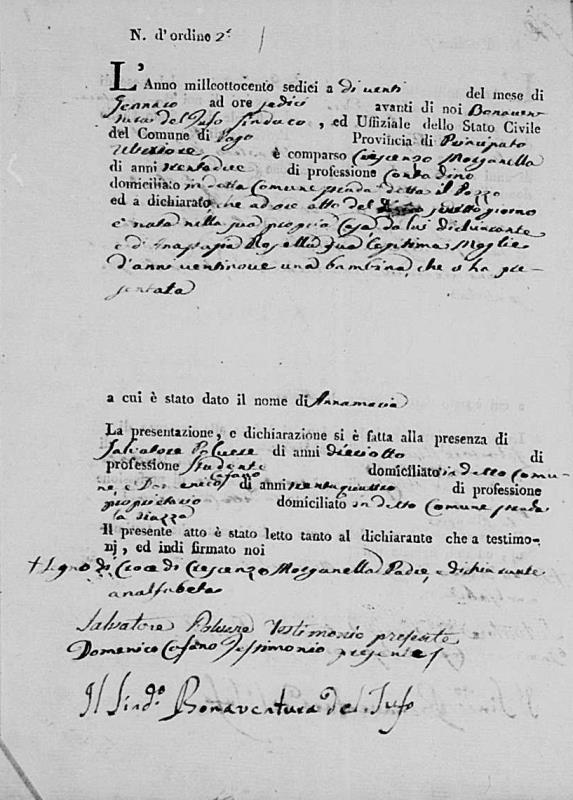 N. d'ordine 2°
L'Anno millcottocento sedici a di venti del mese di
Gennaro ad ore sedici avanti di noi Bonaven-
tura del Tufo Sindaco, ed Uffiziale dello Stato Civile
del Comune di Pago Provincia di Principato
Ulteriore è comparso Crescenzo Morganella
di anni trentadue di professione Contadino
domiciliato in detta Comune strada detta il Pozzo
ed a dichiarato che ad ore otto del sudetto giorno
è nata nella sua propria Casa da lui dichiarante
e di Anastasia Rosella sua legitima Moglie
d'anni ventinove una bambina, che ci ha pre-
sentata
a cui è stato dato il nome di Annamaria
La presentazione, e dichiarazione si è fatta alla presenza di
Salvatore Poluese di anni dieciotto di
professione Studente domiciliato in detto Comu-
ne, e Domenico Cafano di anni trentaquattro di professione
proprietario domiciliato in detto Comune strada
la Piazza
Il presente atto è stato letto tanto al dichiarante che a testimo-
nj, ed indi firmato noi
+ Segno di Croce di Crescenzo Morganella Padre, e dichiarante
analfabeta
Salvatore Poluese Testimonio presente
Domenico Cafano Testimonio presente
Il Sind.° Bonaventura del Tufo